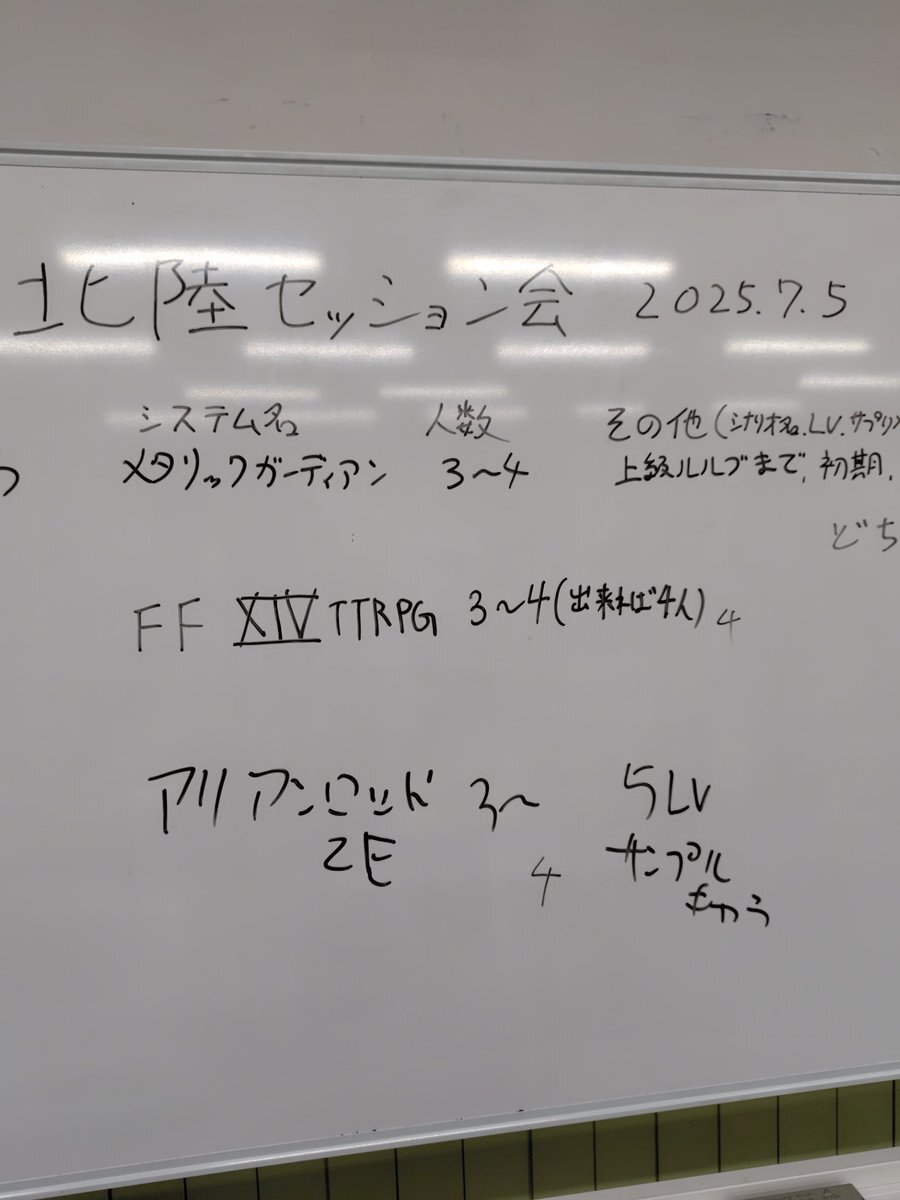 北陸セッション会 2025.7.5
システム名 人数 その他(シナリオ名.LV.サプリ)
メタリックガーディアン 3〜4 上級ルルブまで, 初期,
どち
FF XIV TTRPG 3〜4(出来れば4人) 4
アリアンロッド 3〜 5LV
2E 4 サンプル